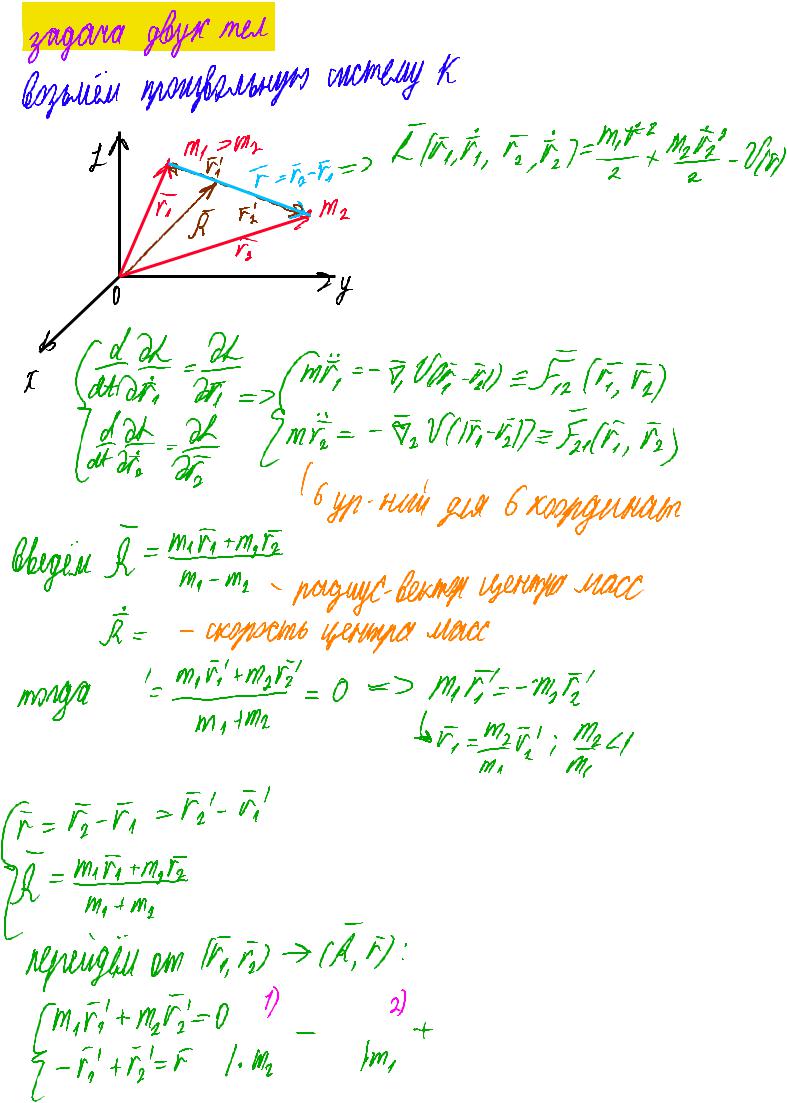 задача двух тел
Возьмём произвольную систему K
z m₁ > m₂
r̄₁' r̄ = r̄₂ - r̄₁ => L̄(r̄₁, ṙ̄₁, r̄₂, ṙ̄₂) = m₁ṙ̄²/2 + m₂ṙ̄₂²/2 - U(r)
r̄₁ R̄ r̄₂' m₂
r̄₂
0 y
x
{ d/dt ∂L/∂ṙ̄₁ = ∂L/∂r̄₁ => { mr̈̄₁ = - ∇̄₁ U(|r̄₁ - r̄₂|) ≡ F̄₁₂ (r̄₁, r̄₂)
{ d/dt ∂L/∂ṙ̄₂ = ∂L/∂r̄₂ { mr̈̄₂ = - ∇̄₂ U(|r̄₁ - r̄₂|) ≡ F̄₂₁ (r̄₁, r̄₂)
6 ур-ний для 6 координат
введём R̄ = (m₁r̄₁ + m₂r̄₂)/(m₁ - m₂) - радиус-вектор центра масс
Ṙ̄ = - скорость центра масс
тогда ' = (m₁r̄₁' + m₂r̄₂')/(m₁ + m₂) = 0 => m₁r̄₁' = -m₂r̄₂'
↳ r̄₁ = m₂/m₁ r̄₂' ; m₂/m₁ < 1
{ r̄ = r̄₂ - r̄₁ = r̄₂' - r̄₁'
{ R̄ = (m₁r̄₁ + m₂r̄₂)/(m₁ + m₂)
перейдём от (r̄₁, r̄₂) → (R̄, r̄) :
1) 2)
{ m₁r̄₁' + m₂r̄₂' = 0 - +
{ -r̄₁' + r̄₂' = r̄ |·m₂ |m₁